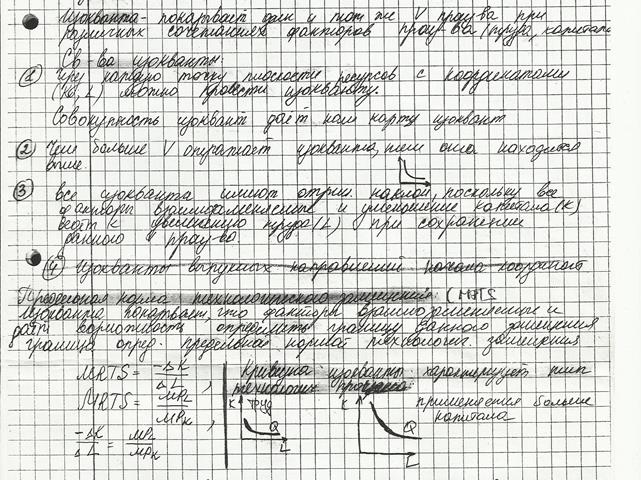 Изокванта - показывает один и тот же V произ-ва при
различных сочетаниях факторов произ-ва (труда, капитала
Св-ва изокванты:
① Через каждую точку плоскости ресурсов с координатами
(K; L) можно провести изокванту.
Совокупность изоквант даёт нам карту изоквант
② Чем больше V отражает изокванта, тем она находится
выше.
③ все изокванта имеют отриц. наклон, поскольку все
факторы взаимозаменяемые и уменьшение капитала (K)
ведёт к увеличению труда (L) при сохранении
данного произ-ва.
④ Изокванты выпуклых направлений начала координат
Предельная норма технологического замещения (
Изокванта показывает, что факторы взаимозаменяемые и
даёт возможность определить границу данного замещения
граница опред. предельная нормой технологич. замещения
MRTS = -ΔK / ΔL ,
MRTS = MPL / MPK ,
-ΔK / ΔL = MPL / MPK
Кривизна изокванты характеризует тип
технологич процесса
K труд Q L
K Q L
применяется больше
капитала